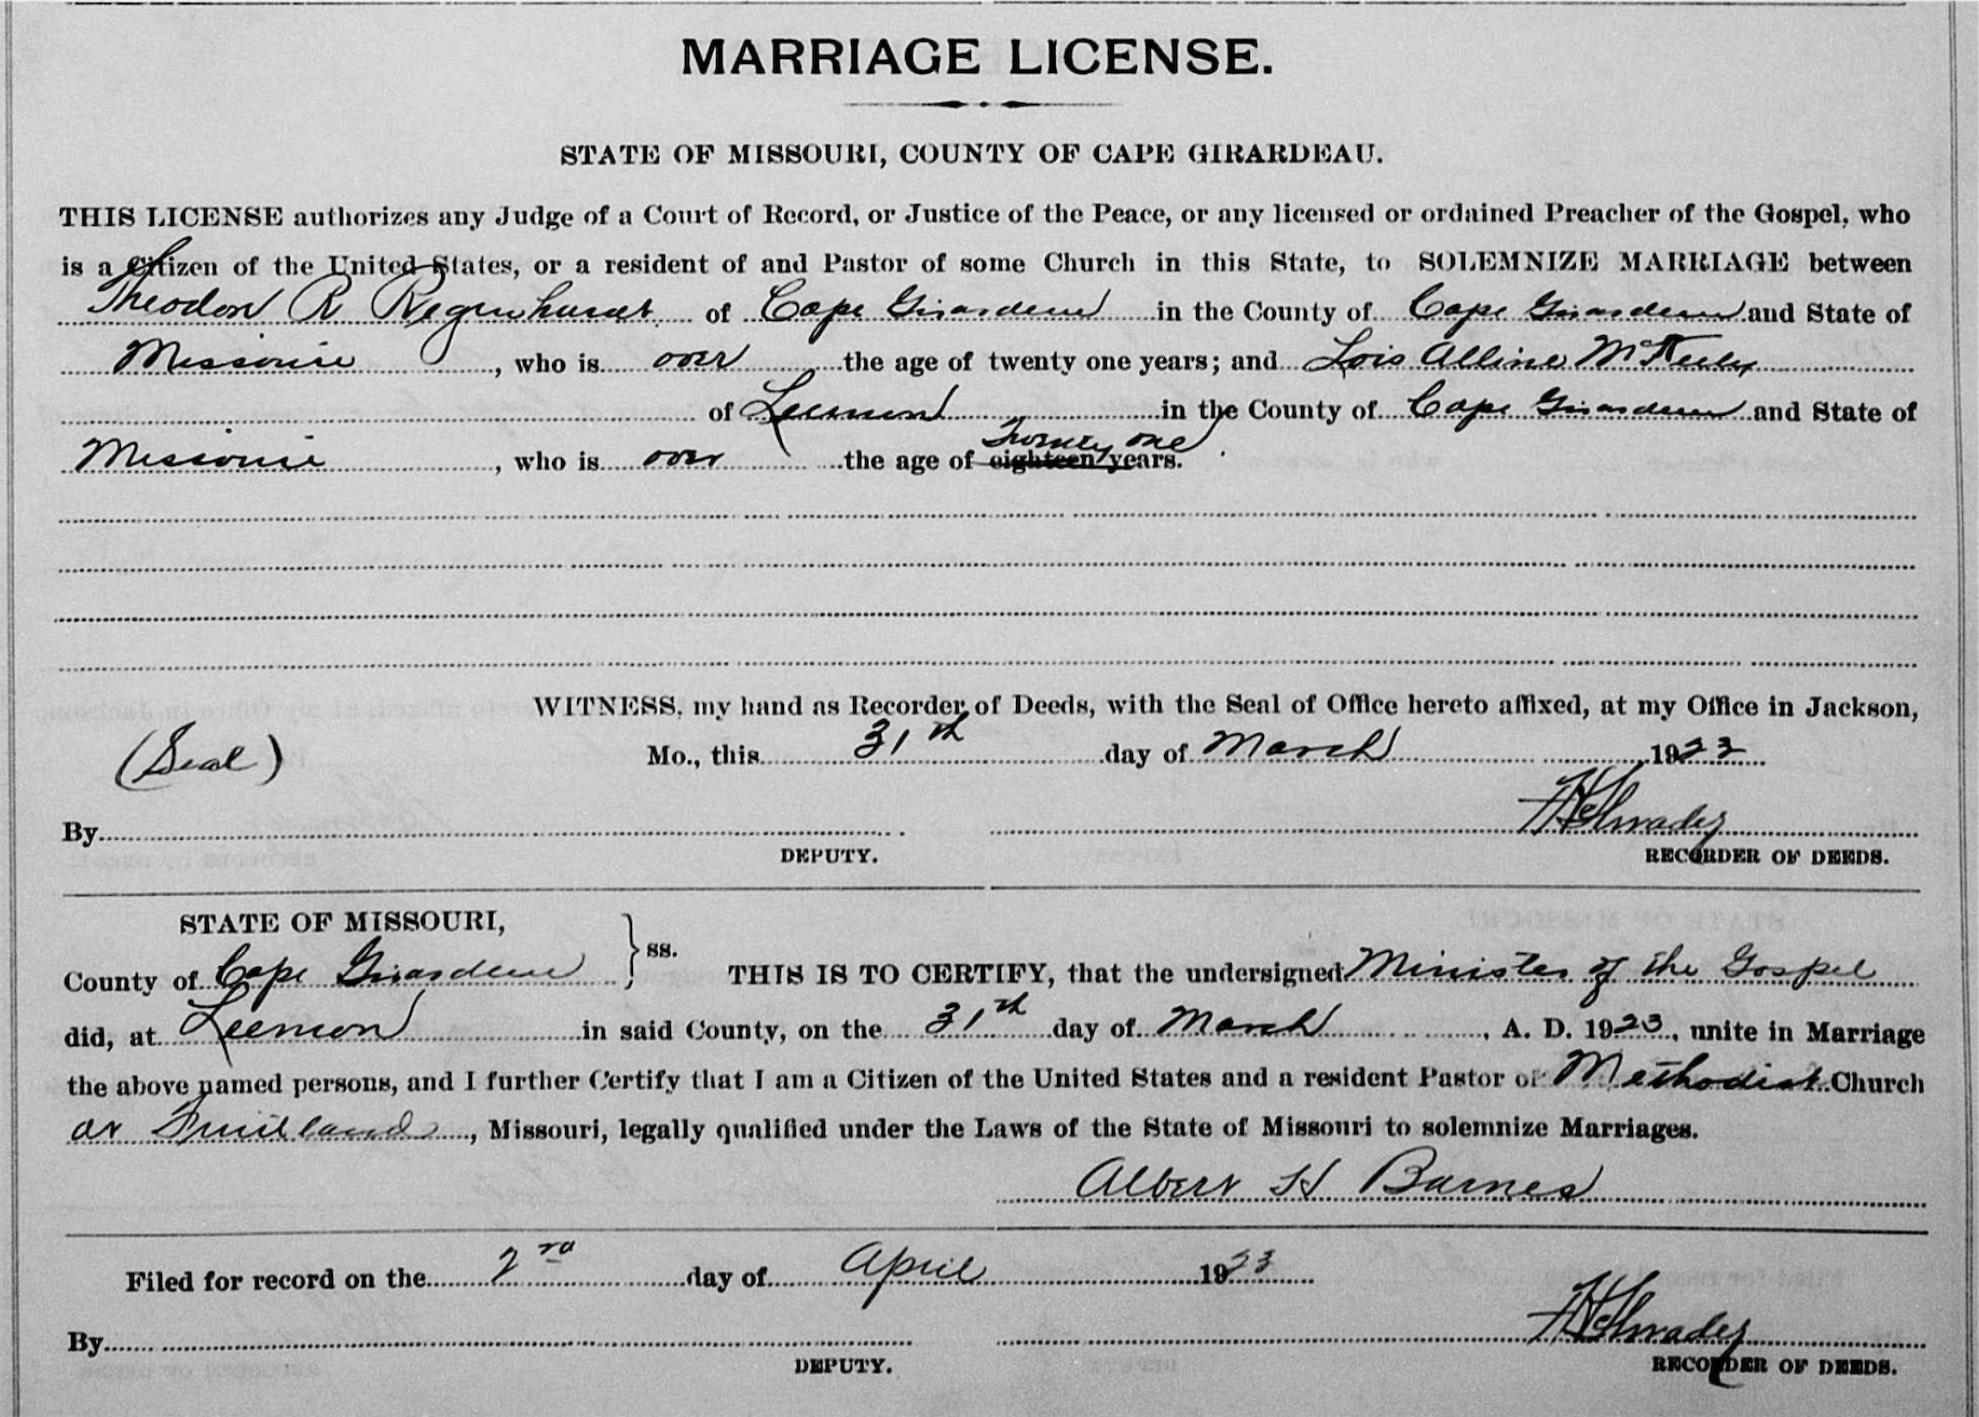 MARRIAGE LICENSE.
STATE OF MISSOURI, COUNTY OF CAPE GIRARDEAU.
THIS LICENSE authorizes any Judge of a Court of Record, or Justice of the Peace, or any licensed or ordained Preacher of the Gospel, who
is a Citizen of the United States, or a resident of and Pastor of some Church in this State, to SOLEMNIZE MARRIAGE between
Theodore R Regenhardt of Cape Girardeau in the County of Cape Girardeau and State of
Missouri, who is over the age of twenty one years; and Lois Alline McNeely
of Leemon in the County of Cape Girardeau and State of
Twenty one
Missouri, who is over the age of eighteen years.
WITNESS, my hand as Recorder of Deeds, with the Seal of Office hereto affixed, at my Office in Jackson,
(Seal) Mo., this 31th day of March 1923
By
DEPUTY. RECORDER OF DEEDS.
STATE OF MISSOURI,
County of Cape Girardeau } ss. THIS IS TO CERTIFY, that the undersigned Minister of the Gospel
did, at Leemon in said County, on the 31th day of March, A. D. 1923, unite in Marriage
the above named persons, and I further Certify that I am a Citizen of the United States and a resident Pastor of Methodist Church
at Fruitland, Missouri, legally qualified under the Laws of the State of Missouri to solemnize Marriages.
Albert H Barnes
Filed for record on the 2nd day of April 1923
By
DEPUTY. RECORDER OF DEEDS.